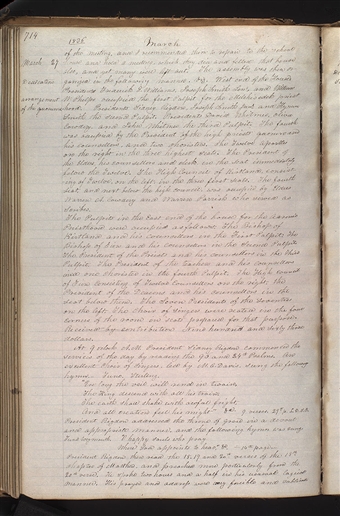 714
1836
March
of the meeting, and I recommended them to repair to the school
March 27
lot, and yet many were left out. The assembly was then
Dedication
arranged in the following manner, viz. West end of the House
Presidents Frederick G. Williams, Joseph Smith Sen., and William
arrangement
W. Phelps occupied the first Pulpit for the Melchisedek priest
of the quorums
hood. Presidents Sidney Rigdon, Joseph Smith Jun. and Hyrum
Smith the second Pulpit, Presidents David Whitmer, Oliver
Cowdery, and John Whitmer the third Pulpit. The fourth
was occupied by the President of the high priests quorum and
his counsellors, and two choristers. The Twelve Apostles
on the right in the three highest seats. The President of
the Elders his counsellors and clerk in the seat immediately
below the Twelve. The High Council of Kirtland, consist-
ing of twelve, on the left in the three first seats. The fourth
seat, and next below the high council, was occupied by Elders
Warren A. Cowdery and Warren Parrish who served as
Scribes.
The Pulpits in the East end of the house for the Aaronic
Priesthood were occupied as follows. The Bishop of
Kirtland and his counsellors in the first Pulpit. The
Bishop of Zion and his counsellors in the second Pulpit.
The President of the Priests and his counsellors in the third
Pulpit. The President of the Teachers and his counsellors
and one chorister in the fourth Pulpit. The High council
of Zion consisting of Twelve Counsellors on the right. The
President of the Deacons and his counsellors in the
seat below them. The Seven Presidents of the Seventies
on the left. The Choir of Singers were seated in the four
corners of the room in seats prepared for that purpose.
Received by contribution Nine hundred and sixty three
dollars.
At 9 o'clock A.M. President Sidney Rigdon commenced the
services of the day by reading the 96 and 24th Psalms. An
excellent choir of Singers led by M. C. Davis, sung the following
hymn. Tune, Sterling.
Ere long the vail will rend in twain,
The King descend with all his train;
The earth shall shake with awful fright,
And all creation feel his might
President Rigdon addressed the throne of grace in a devout
and appropriate manner, and the following hymn was sung
Tune Weymouth. O happy souls who pray
Where God appoints to hear! &c
President Rigdon then read the 18, 19 and 20th verses of the 8th
chapter of Matthew, and preached more particularly from the
20th verse. He spoke two hours and a half in his usual logical
manner. His prayer and address were very forcible and sublime